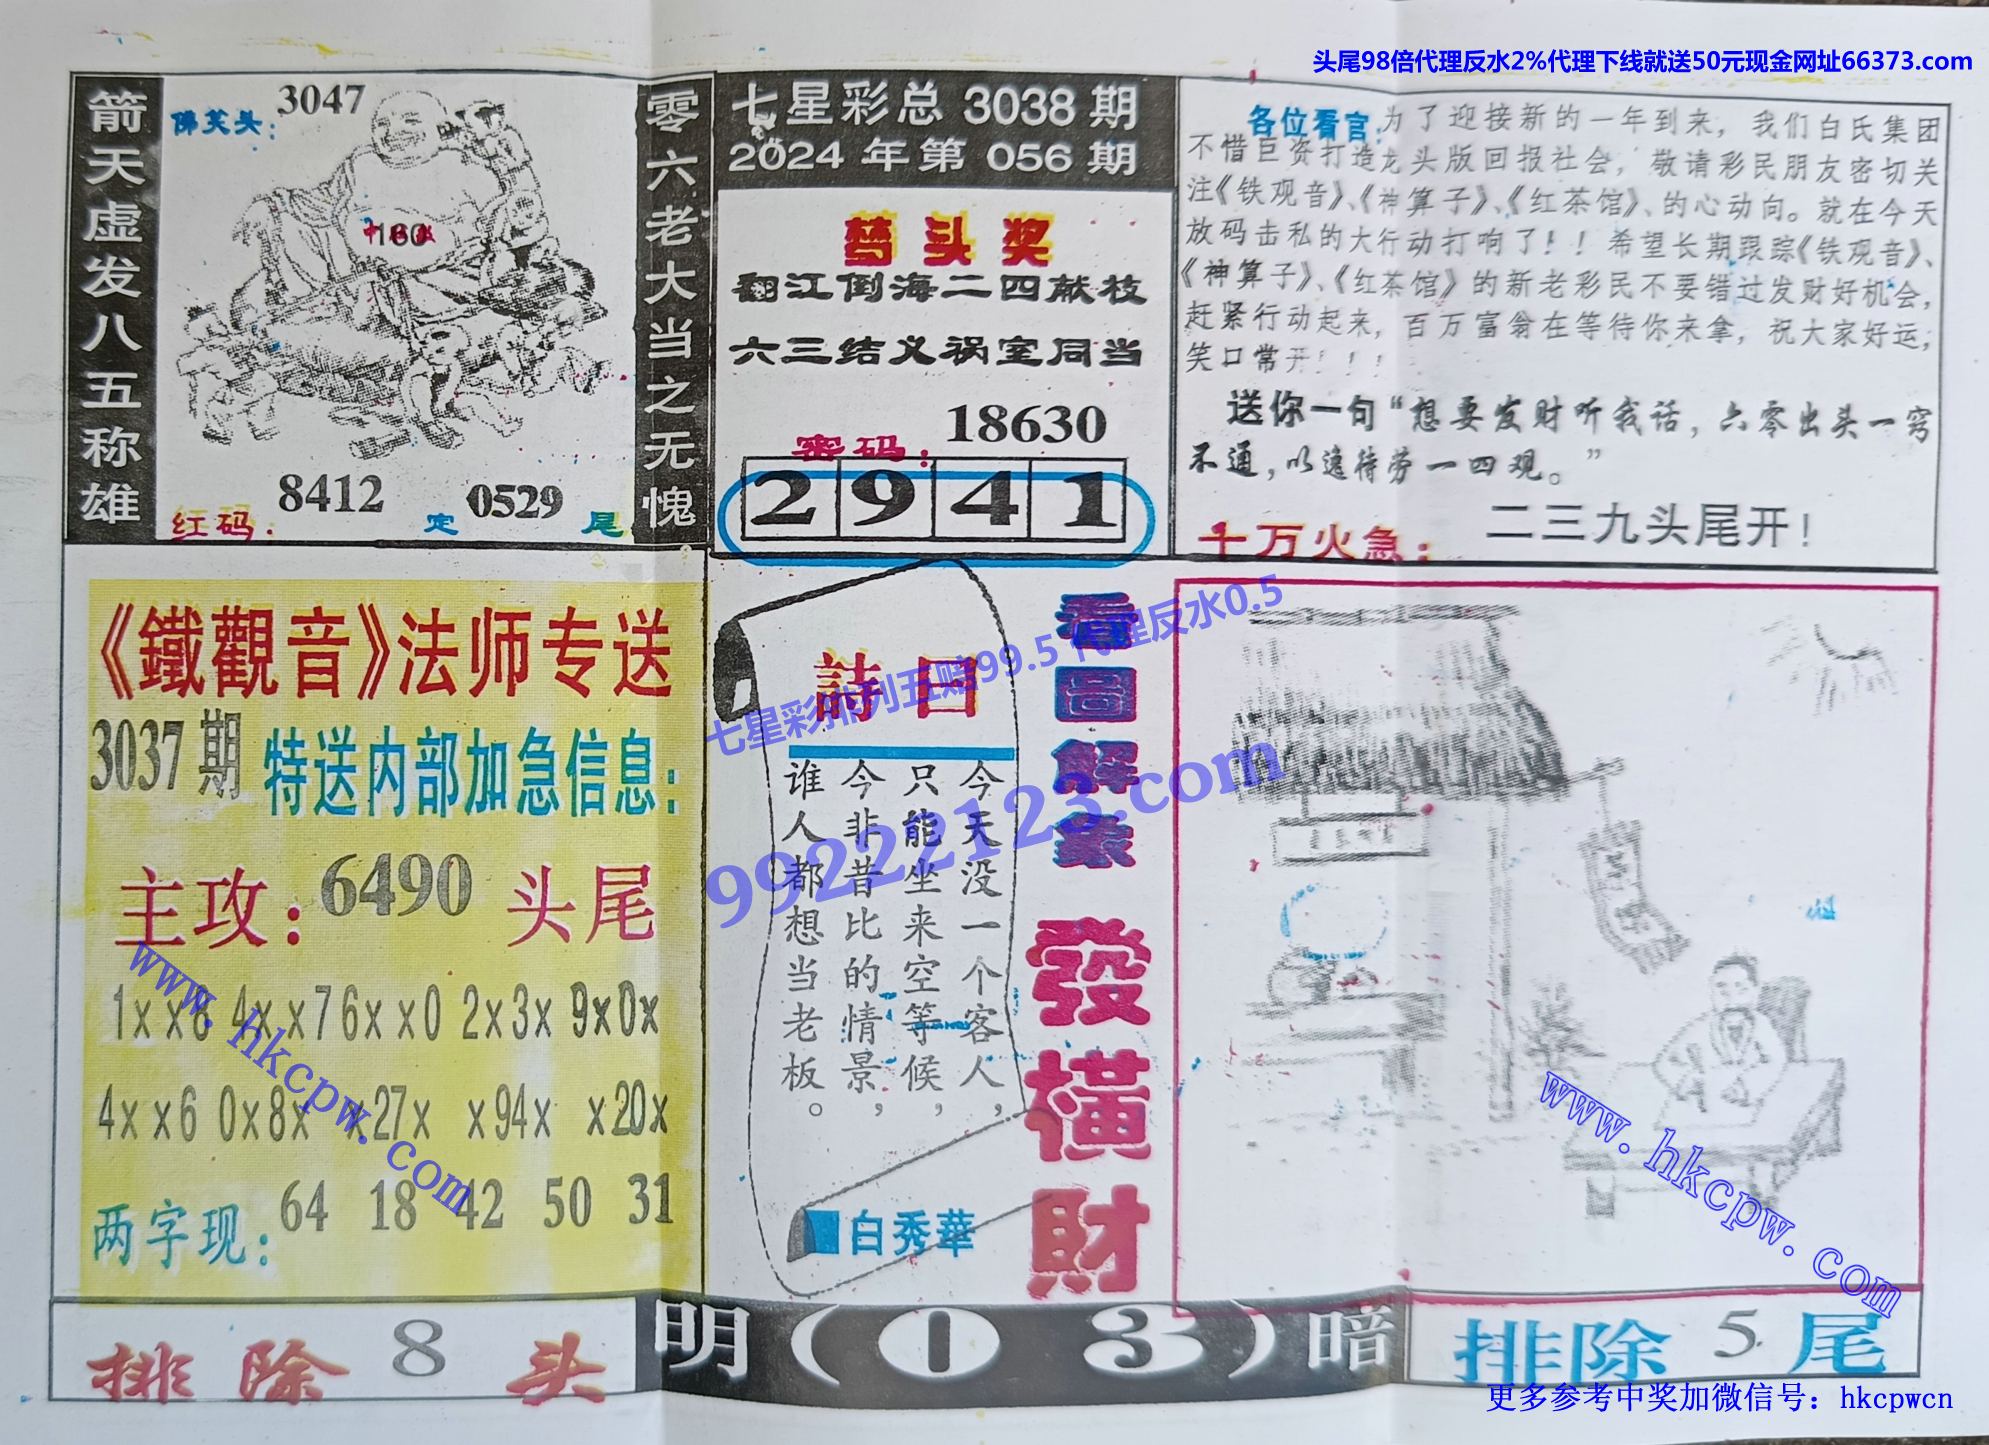 头尾98倍代理反水2%代理下线就送50元现金网址66373.com
箭天虚发八五称雄
佛笑头：3047
160
红码：8412 定 0529 尾
零六老大当之无愧
七星彩总 3038 期
2024 年第 056 期
头奖
翻江倒海二四献枝
六三结义祸室同当
密码：18630
2 9 4 1
各位看官：为了迎接新的一年到来，我们白氏集团
不惜巨资打造龙头版回报社会，敬请彩民朋友密切关
注《铁观音》、《神算子》、《红茶馆》、的心动向。就在今天
放码击私的大行动打响了！！希望长期跟踪《铁观音》、
《神算子》、《红茶馆》的新老彩民不要错过发财好机会，
赶紧行动起来，百万富翁在等待你来拿，祝大家好运，
笑口常开！！！
送你一句“想要发财听我话，六零出头一窍
不通，以逸待劳一四观。”
十万火急：二三九头尾开！
《鐵觀音》法师专送
3037 期 特送内部加急信息：
主攻：6490 头尾
1xx8 4xx7 6xx0 2x3x 9x0x
4xx6 0x8x x27x x94x x20x
两字现：64 18 42 50 31
詩曰
今天没一个客人，
只能坐来空等候，
今非昔比的情景，
谁人都想当老板。
白秀華
看圖解象
發橫財
七星彩排列五赔99.5 代理反水0.5
99222123.com
www.hkcpw.com
www.hkcpw.com
排除 8 头
明（0 3）暗
排除 5 尾
更多参考中奖加微信号：hkcpwcn